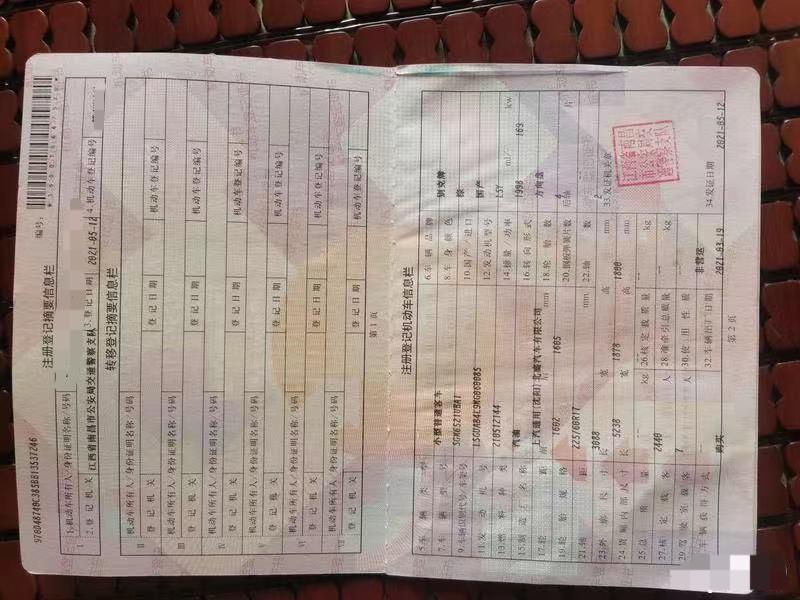 注册登记摘要信息栏
编号:
1.机动车所有人/身份证明名称/号码
2.登记机关 江西省南昌市公安局交通警察支队 3.登记日期 2021-05-12 4.机动车登记编号
转移登记摘要信息栏
机动车所有人/身份证明名称/号码
登记机关 登记日期 机动车登记编号
机动车所有人/身份证明名称/号码
登记机关 登记日期 机动车登记编号
机动车所有人/身份证明名称/号码
登记机关 登记日期 机动车登记编号
机动车所有人/身份证明名称/号码
登记机关 登记日期 机动车登记编号
机动车所有人/身份证明名称/号码
登记机关 登记日期 机动车登记编号
机动车所有人/身份证明名称/号码
登记机关 登记日期 机动车登记编号
第1页
注册登记机动车信息栏
5.车辆类型 小型普通客车 6.车辆品牌 别克牌
7.车辆型号 8.车身颜色 棕
9.车辆识别代号/车架号 10.国产/进口 国产
11.发动机号 12.发动机型号 LSY
13.燃料种类 汽油 14.排量/功率 1998 ml/ 169 kw
15.制造厂名称 上汽通用(沈阳)北盛汽车有限公司 16.转向形式 方向盘
17.轮距 前 1602 后 1605 mm 18.轮胎数 4
19.轮胎规格 225/60R17 20.钢板弹簧片数 后轴 片
21.轴距 3088 mm 22.轴数 2
23.外廓尺寸 长 5238 宽 1878 高 1800 mm
24.货厢内部尺寸 长 宽 高 mm
33.发证机关章
25.总质量 2440 kg 26.核定载质量 kg
27.核定载客 7 人 28.准牵引总质量 kg
29.驾驶室载客 人 30.使用性质 非营运
车辆获得方式 购买 32.车辆出厂日期 2021-03-19
34.发证日期 2021-05-12
第2页